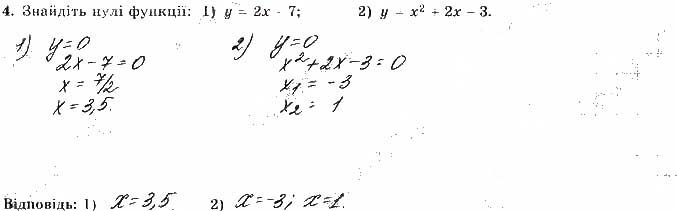 4. Знайдіть нулі функції: 1) y = 2x - 7; 2) y = x² + 2x - 3.
1) y=0 2) y=0
2x-7=0 x²+2x-3=0
x=7/2 x₁=-3
x=3,5. x₂=1
Відповідь: 1) x=3,5 2) x=-3; x=1.